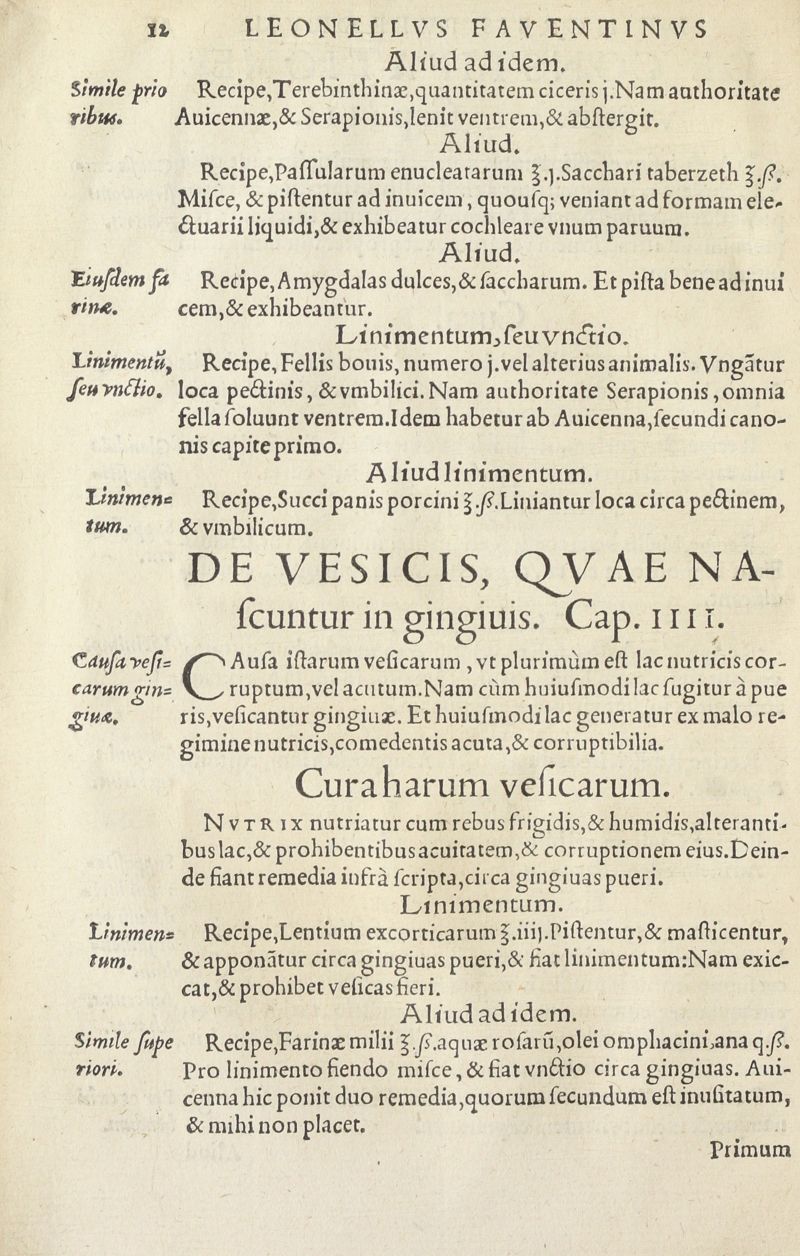 12 LEONELLVS FAVENTINVS
Aliud ad idem.
Simile prio
ribus.
Recipe, Terebinthinæ, quantitatem ciceris j. Nam authoritate
Auicennæ, & Serapionis, lenit ventrem, & abſtergit.
Aliud.
Recipe, Paſſularum enuclearatum ℥.j. Sacchari taberzeth ℥.ß.
Miſce, & piſtentur ad inuicem, quouſq; veniant ad formam ele-
ctuarii liquidi, & exhibeatur cochleare vnum paruum.
Aliud.
Eiuſdem fa
rinæ.
Recipe, Amygdalas dulces, & ſaccharum. Et piſta bene ad inui
cem, & exhibeantur.
Linimentum, ſeu vnctio.
Linimentū,
ſeu vnctio.
Recipe, Fellis bouis, numero j. vel alterius animalis. Vngātur
loca pectinis, & vmbilici. Nam authoritate Serapionis, omnia
fella ſoluunt ventrem. Idem habetur ab Auicenna, ſecundi cano-
nis capite primo.
Aliud linimentum.
Linimen=
tum.
Recipe, Succi panis porcini ℥.ß. Liniantur loca circa pectinem,
& vmbilicum.
DE VESICIS, QVAE NA-
ſcuntur in gingiuis. Cap. IIII.
Cauſa veſi=
carum gin=
giuæ.
CAuſa iſtarum veſicarum, vt plurimùm eſt lac nutricis cor-
ruptum, vel acutum. Nam cùm huiuſmodi lac ſugitur à pue
ris, veſicantur gingiuæ. Et huiuſmodi lac generatur ex malo re-
gimine nutricis, comedentis acuta, & corruptibilia.
Cura harum veſicarum.
NVTRIX nutriatur cum rebus frigidis, & humidis, alteranti-
bus lac, & prohibentibus acuitatem, & corruptionem eius. Dein-
de fiant remedia infrà ſcripta, circa gingiuas pueri.
Linimentum.
Linimen=
tum.
Recipe, Lentium excorticarum ℥.iiij. Piſtentur, & maſticentur,
& apponātur circa gingiuas pueri, & fiat linimentum: Nam exic-
cat, & prohibet veſicas fieri.
Aliud ad idem.
Simile ſupe
riori.
Recipe, Farinæ milii ℥.ß. aquæ roſarū, olei omphacini, ana q.ß.
Pro linimento fiendo miſce, & fiat vnctio circa gingiuas. Aui-
cenna hic ponit duo remedia, quorum ſecundum eſt inuſitatum,
& mihi non placet.
Primum